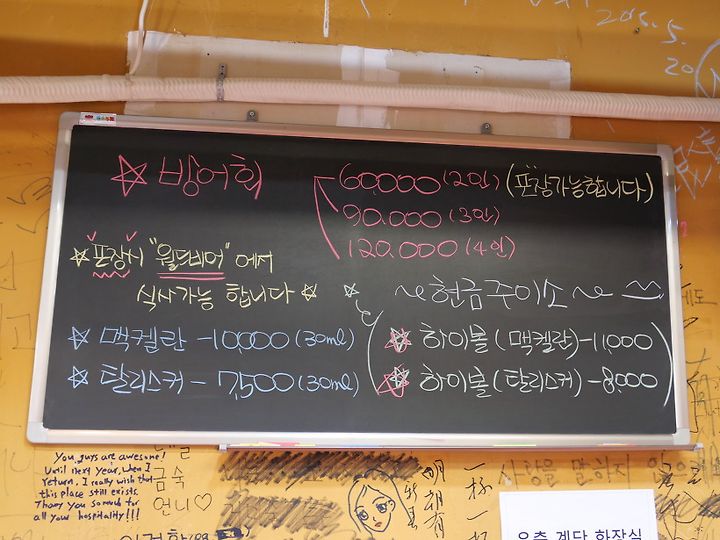 ☆ 방어회
60.000 (2인) (포장가능합니다)
90.000 (3인)
120.000 (4인)
☆ 포장시 "월드비어" 에서
식사가능 합니다 ☆
☆ ~ 현금주이소 ~
☆ 맥켈란 - 10,000 (30ml)
☆ 탈리스커 - 7,500 (30ml)
☆ 하이볼 (맥켈란) - 11,000
☆ 하이볼 (탈리스커) - 8,000
You guys are awesome!
Until next year, when I
return. I really wish that
this place still exists.
Thank you so much for
all your hospitality!!!
금숙
언니♡
明朝有
一杯一
사랑을 말하지
위층 계단 화장실